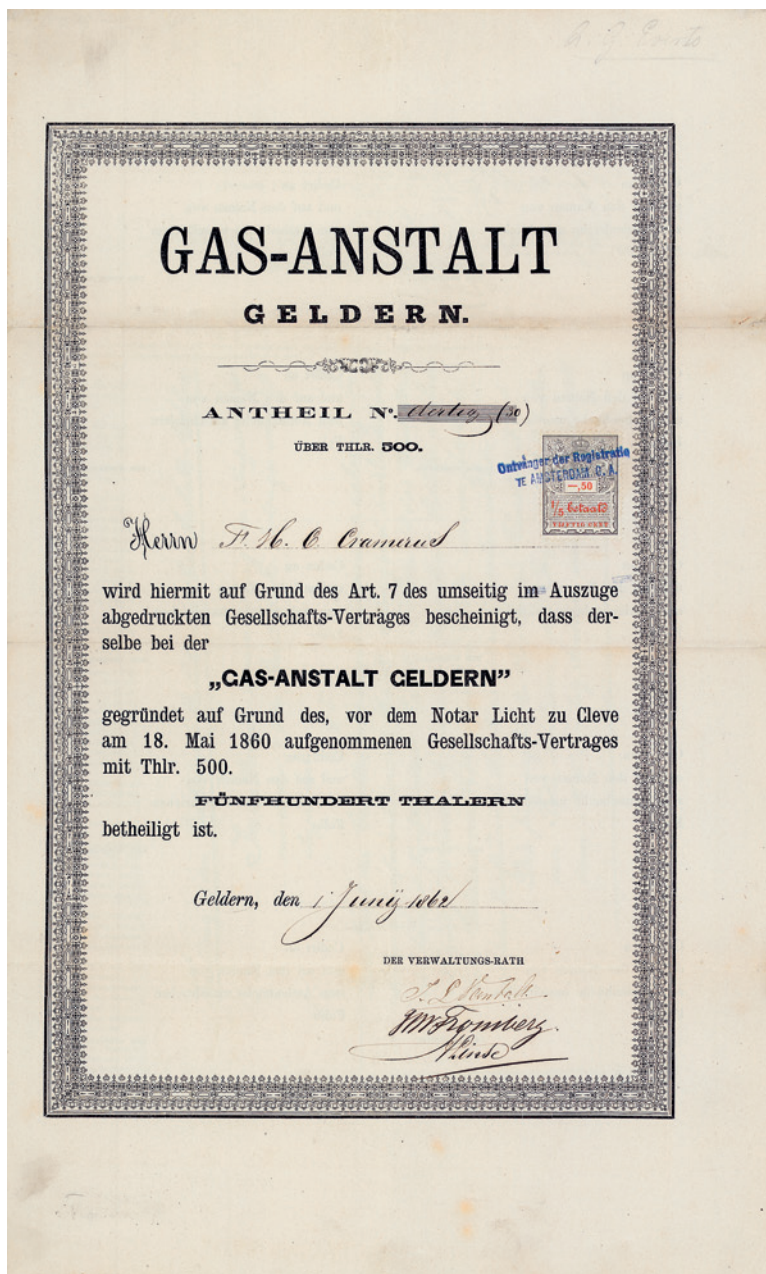 GAS-ANSTALT
GELDERN.
ANTHEIL No. dertig (30)
ÜBER THLR. 500.
Ontvanger der Registratie
TE AMSTERDAM
—,50
1/5 betaald
VIJFTIG CENT
Herrn F. H. C. Cramerus
wird hiermit auf Grund des Art. 7 des umseitig im Auszuge
abgedruckten Gesellschafts-Vertrages bescheinigt, dass der-
selbe bei der
„GAS-ANSTALT GELDERN”
gegründet auf Grund des, vor dem Notar Licht zu Cleve
am 18. Mai 1860 aufgenommenen Gesellschafts-Vertrages
mit Thlr. 500.
FÜNFHUNDERT THALERN
betheiligt ist.
Geldern, den 1 Junij 1862
DER VERWALTUNGS-RATH
Fromberg.